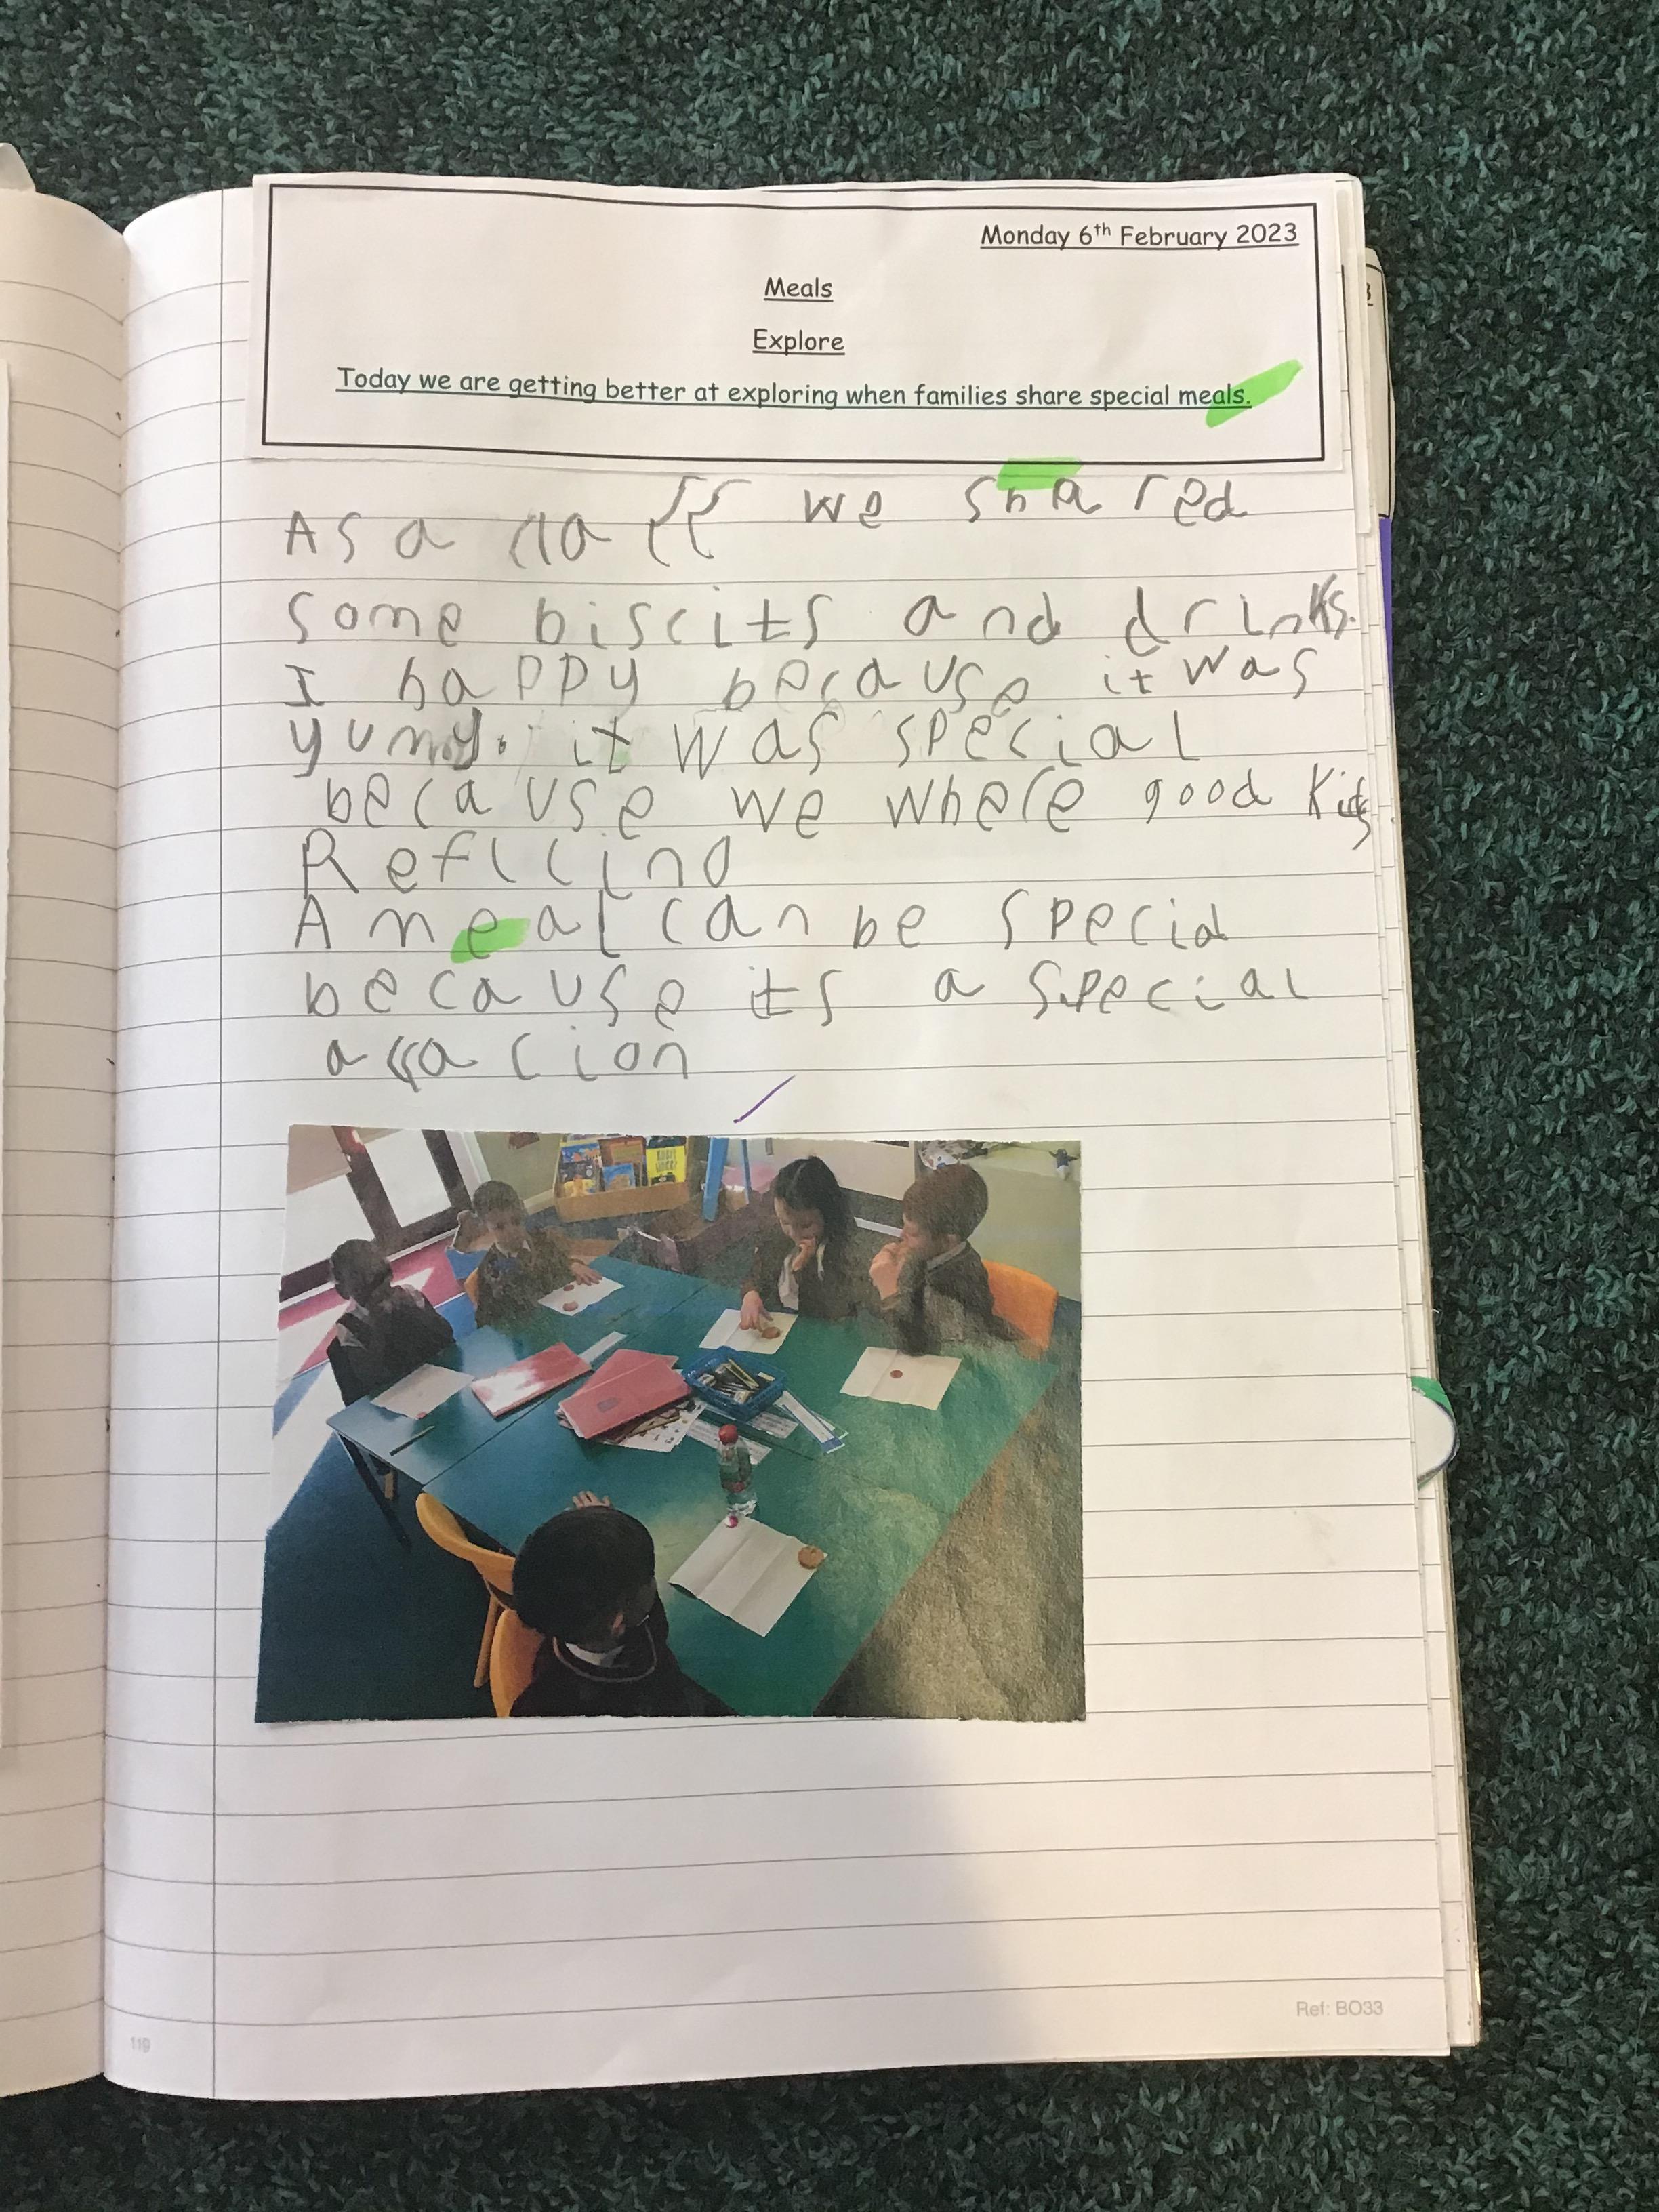 Monday 6th February 2023
Meals
Explore
Today we are getting better at exploring when families share special meals.
As a class we shared
some biscits and drinks.
I happy because it was
yumy. it was special
because we where good kids
Reflcind
A meal can be special
because its a special
accacion
Ref: BO33
119